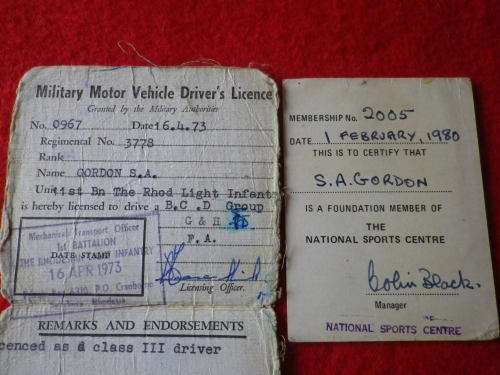 Military Motor Vehicle Driver's Licence
Granted by the Military Authorities
No. 0967 Date 16.4.73
Regimental No. 3778
Rank
Name GORDON S.A.
Unit 1st Bn The Rhod Light Infant
is hereby licensed to drive a B.C.D Group
G & H
F.A.
Mechanical Transport Officer
1st BATTALION
THE RHODESIAN LIGHT INFANTRY
DATE STAMP
16 APR 1973
P.O. Cranborne
Rhodesia
Licensing Officer.
REMARKS AND ENDORSEMENTS
cenced as a class III driver
MEMBERSHIP No. 2005
DATE 1 FEBRUARY, 1980
THIS IS TO CERTIFY THAT
S.A. GORDON
IS A FOUNDATION MEMBER OF
THE
NATIONAL SPORTS CENTRE
Colin Black.
Manager
THE
NATIONAL SPORTS CENTRE